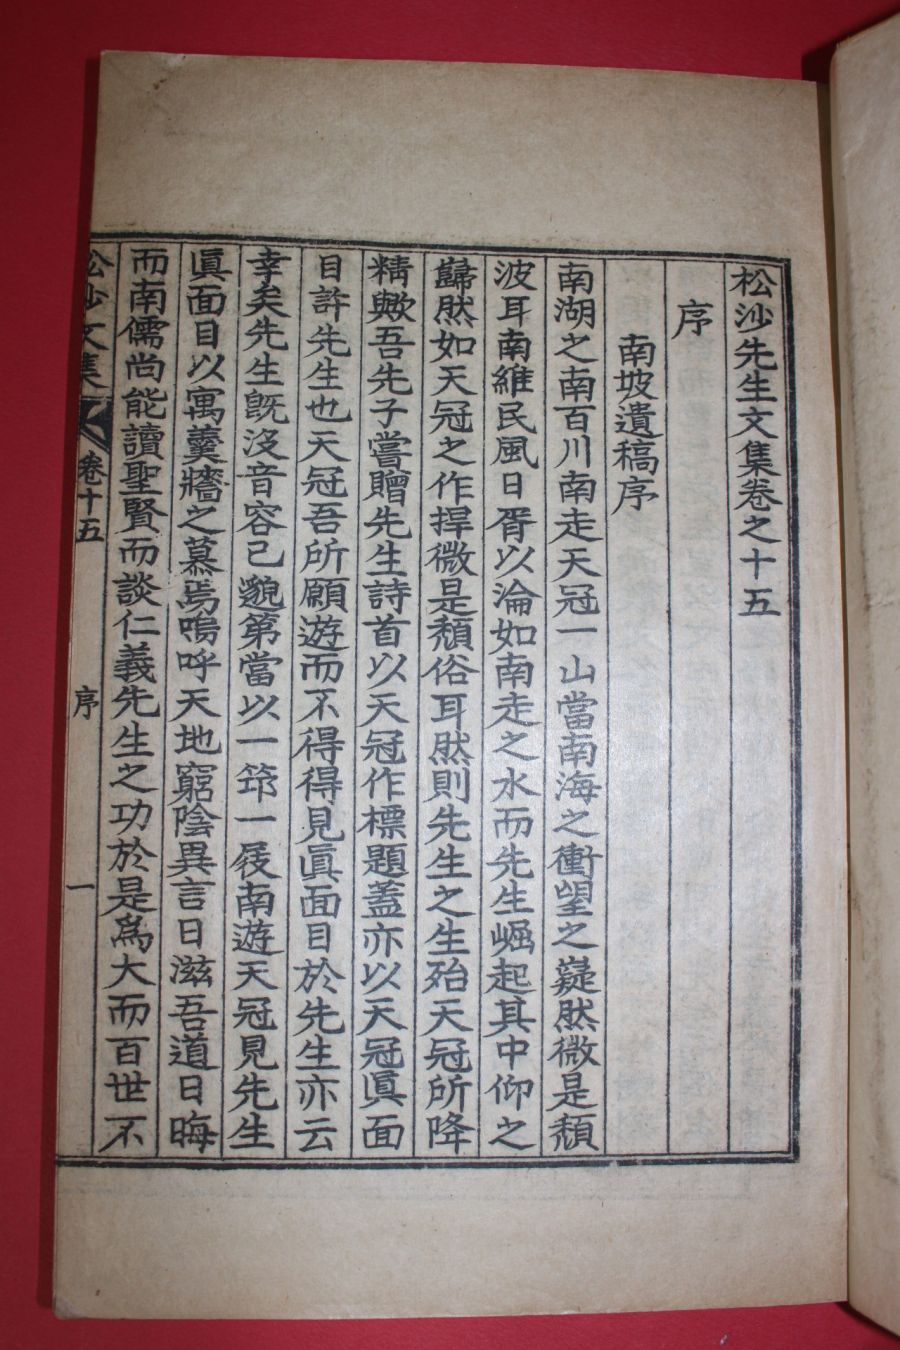 松沙先生文集卷之十五
序
南坡遺稿序
南湖之南百川南走天冠一山當南海之衝望之嶷然微是頹
波耳南維民風日胥以淪如南走之水而先生崛起其中仰之
巋然如天冠之作捍微是頹俗耳然則先生之生殆天冠所降
精歟吾先子嘗贈先生詩首以天冠作標題蓋亦以天冠眞面
目許先生也天冠吾所願遊而不得得見眞面目於先生亦云
幸矣先生旣沒音容已邈第當以一笻一屐南遊天冠見先生
眞面目以寓羹牆之慕焉嗚呼天地窮陰異言日滋吾道日晦
而南儒尚能讀聖賢而談仁義先生之功於是爲大而百世不
松沙文集 卷十五 序 一